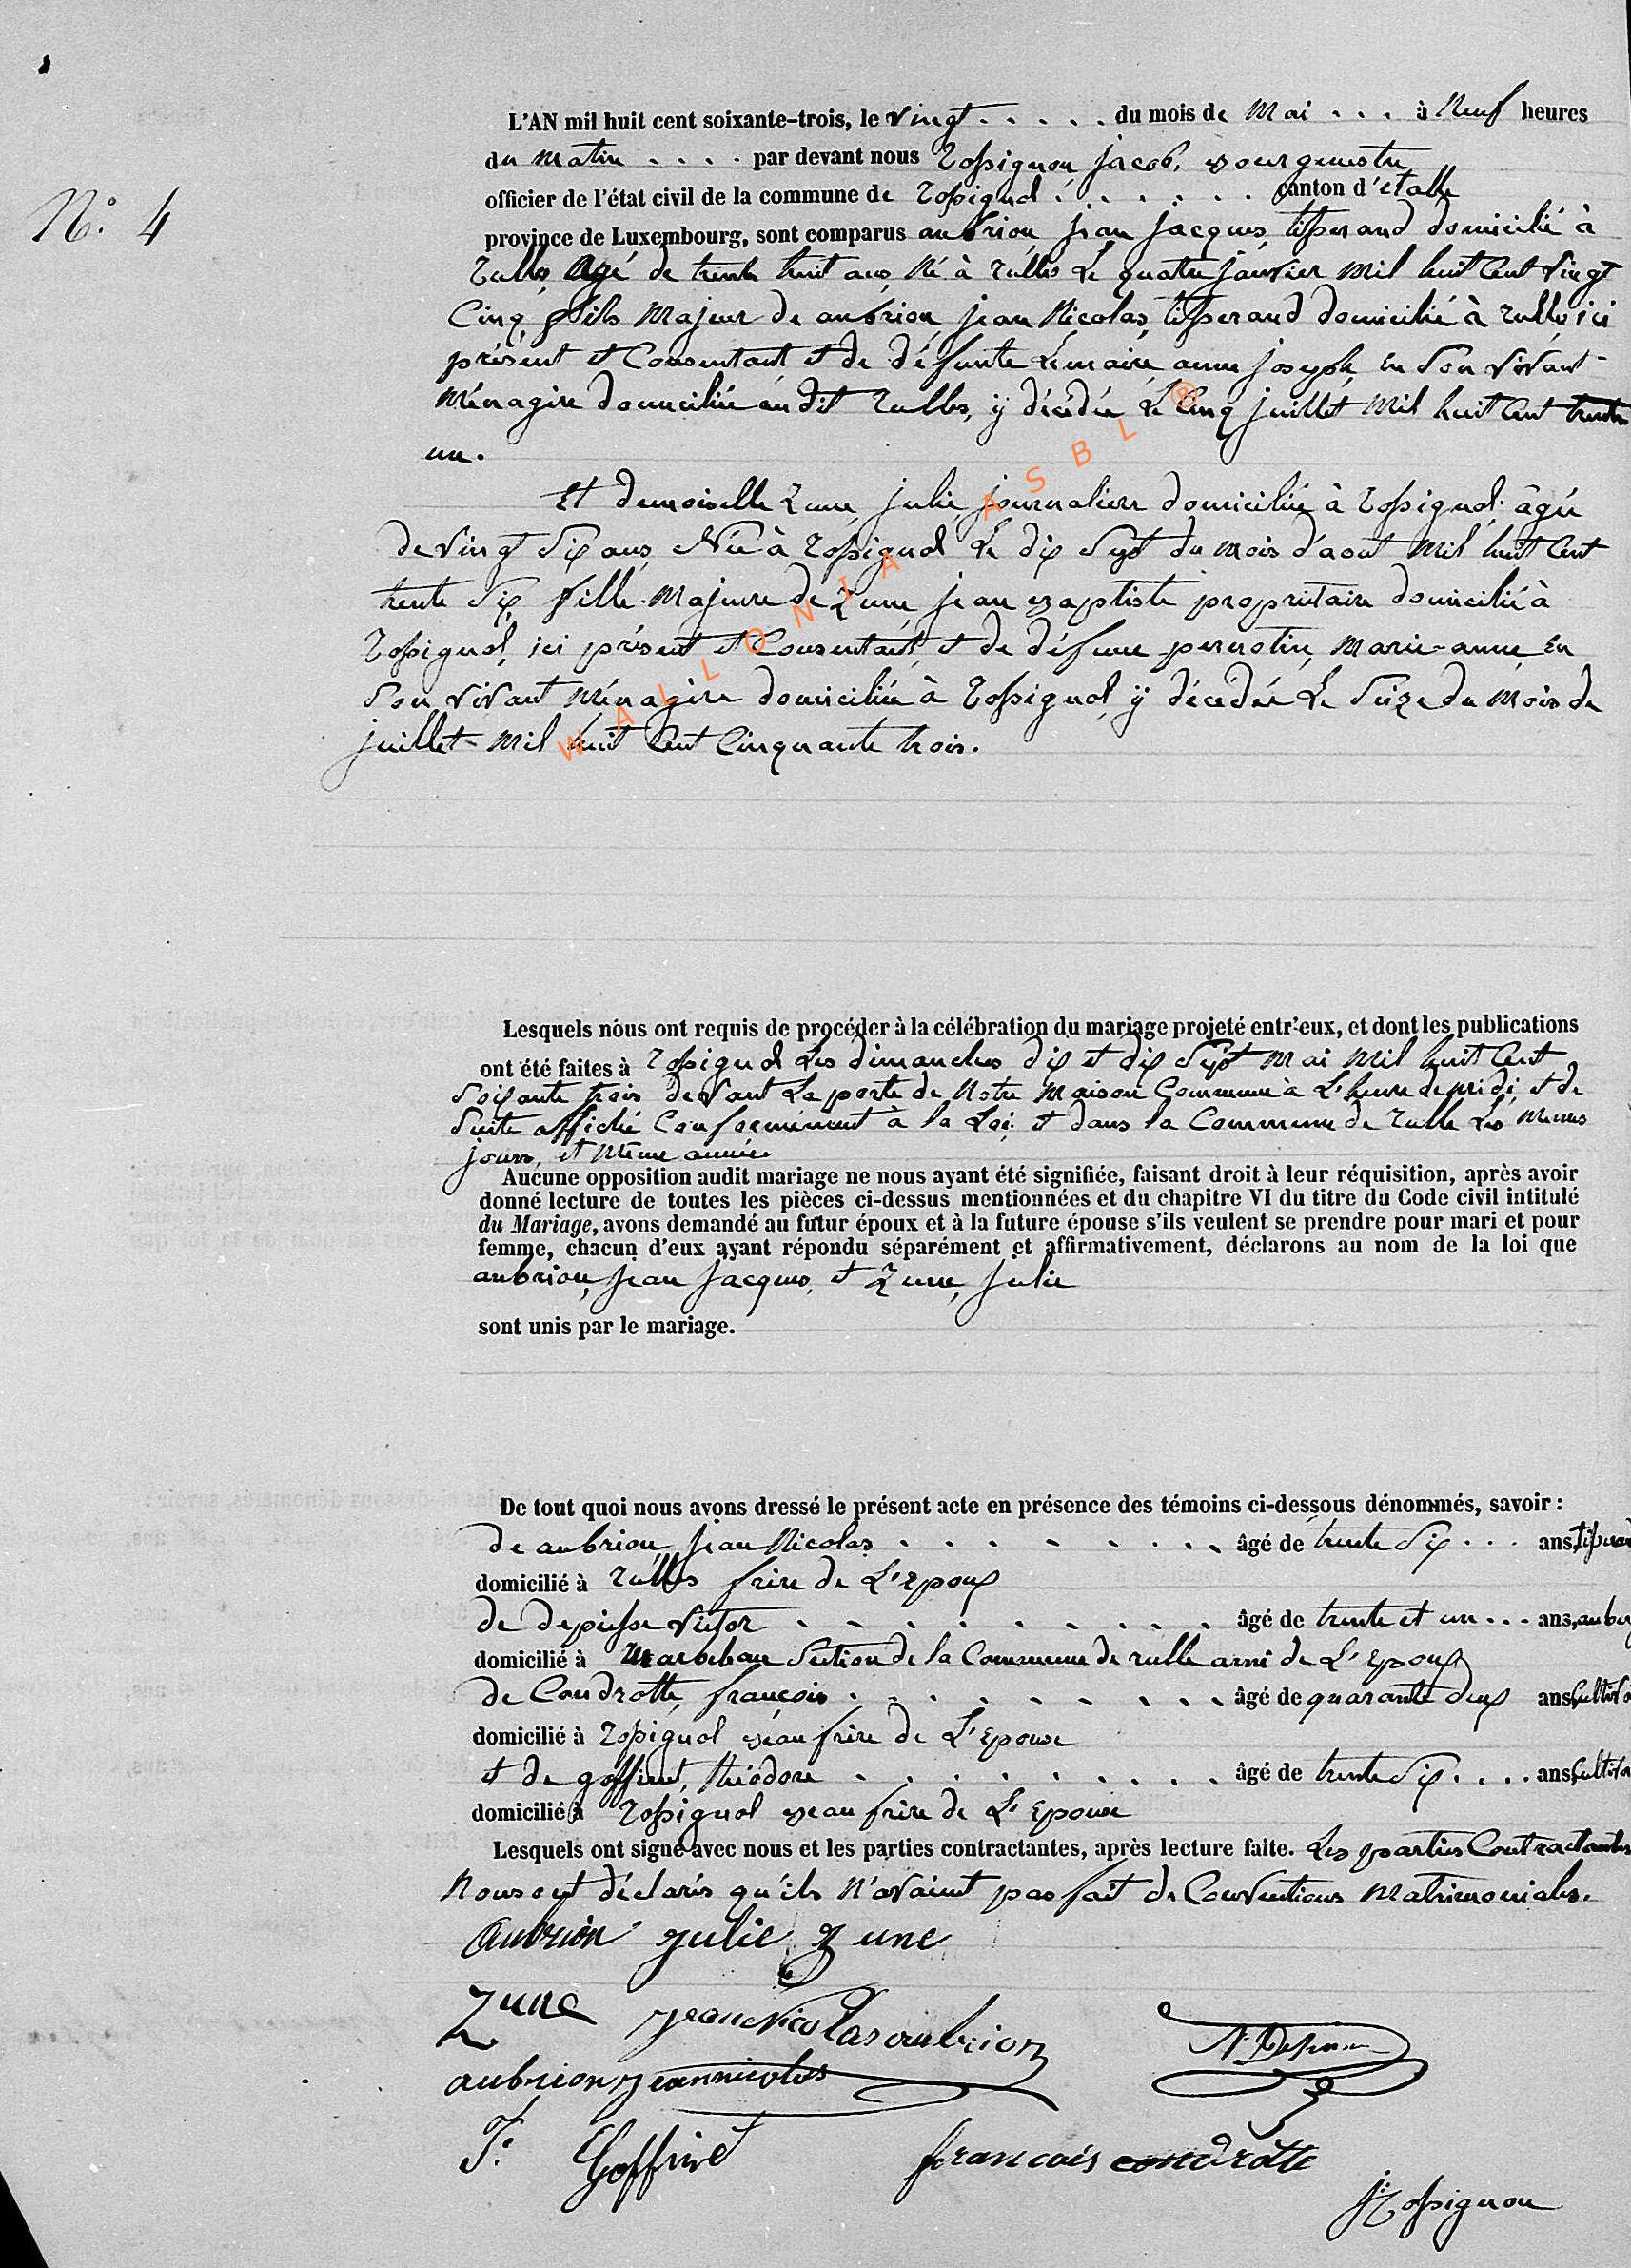 L'AN mil huit cent soixante-trois, le vingt . . . . . du mois de mai . . . à neuf heures
du matin . . . . par devant nous Rossignon, jacob, Bourgmestre
officier de l'état civil de la commune de Rossignol . . . . . . canton d'étalle
N° 4
province de Luxembourg, sont comparus aubrion, jean jacques, tisserand domicilié à
Rulles, agé de trente huit ans, Né à rulles Le quatre janvier mil huit Cent vingt
Cinq, fils Majeur de aubrion jean Nicolas, tisserand domicilié à rulles, ici
présent et Consentant, et de défunte Lemaire, anne joseph, en Son vivant
Ménagère domiciliée au dit Rulles, ÿ décédée Le Cinq juillet Mil huit Cent trente
un.
Et demoiselle Zune, julie, journalière domiciliée à Rossignol, âgée
de vingt Six ans, Née à Rossignol Le dix Sept du mois d'aout mil huit Cent
trente Six, fille Majeure de Zune, jean Baptiste propriétaire domicilié à
Rossignol, ici présent et Consentant, et de défune pernotin, marie-anne, en
Son vivant Ménagère domiciliée à Rossignol, ÿ décédée Le Seize du mois de
juillet Mil huit Cent Cinquante trois.
WALLONIA ASBL ®
Lesquels nous ont requis de procéder à la célébration du mariage projeté entr'eux, et dont les publications
ont été faites à Rossignol Les dimanches dix et dix Sept mai Mil huit Cent
Soixante trois devant La porte de Notre Maison Commune à L'heure de midi, et de
Suite affiché Conformément à la Loi, et dans la Commune de Rulle Les Memes
jours, et Même année.
Aucune opposition audit mariage ne nous ayant été signifiée, faisant droit à leur réquisition, après avoir
donné lecture de toutes les pièces ci-dessus mentionnées et du chapitre VI du titre du Code civil intitulé
du Mariage, avons demandé au futur époux et à la future épouse s'ils veulent se prendre pour mari et pour
femme, chacun d'eux ayant répondu séparément et affirmativement, déclarons au nom de la loi que
aubrion, jean jacques, et Zune, julie
sont unis par le mariage.
De tout quoi nous avons dressé le présent acte en présence des témoins ci-dessous dénommés, savoir :
de aubrion, jean Nicolas . . . . . . . . . âgé de trente Six . . . ans,
domicilié à Rulles frère de L'Epoux
de Victor . . . . . . . . . âgé de trente et un . . . ans,
domicilié à Marbehan Section de la Commune de rulle ami de L'Epoux
de Condrotte, françois . . . . . . . . . âgé de quarante deux ans,
domicilié à Rossignol Beau frère de L'Epouse
et de goffinet, théodore . . . . . . . . . âgé de trente Six . . . . ans,
domicilié à Rossignol Beau frère de L'Epouse
Lesquels ont signé avec nous et les parties contractantes, après lecture faite. Les parties Contractantes
Nous ont déclarés qu'ils N'avaient pas fait de Conventions Matrimoniales.
aubrion julie Zune
Zune jean Nicolas aubrion
aubrion jean nicolas
T. Goffinet francois condrotte
J Rossignon